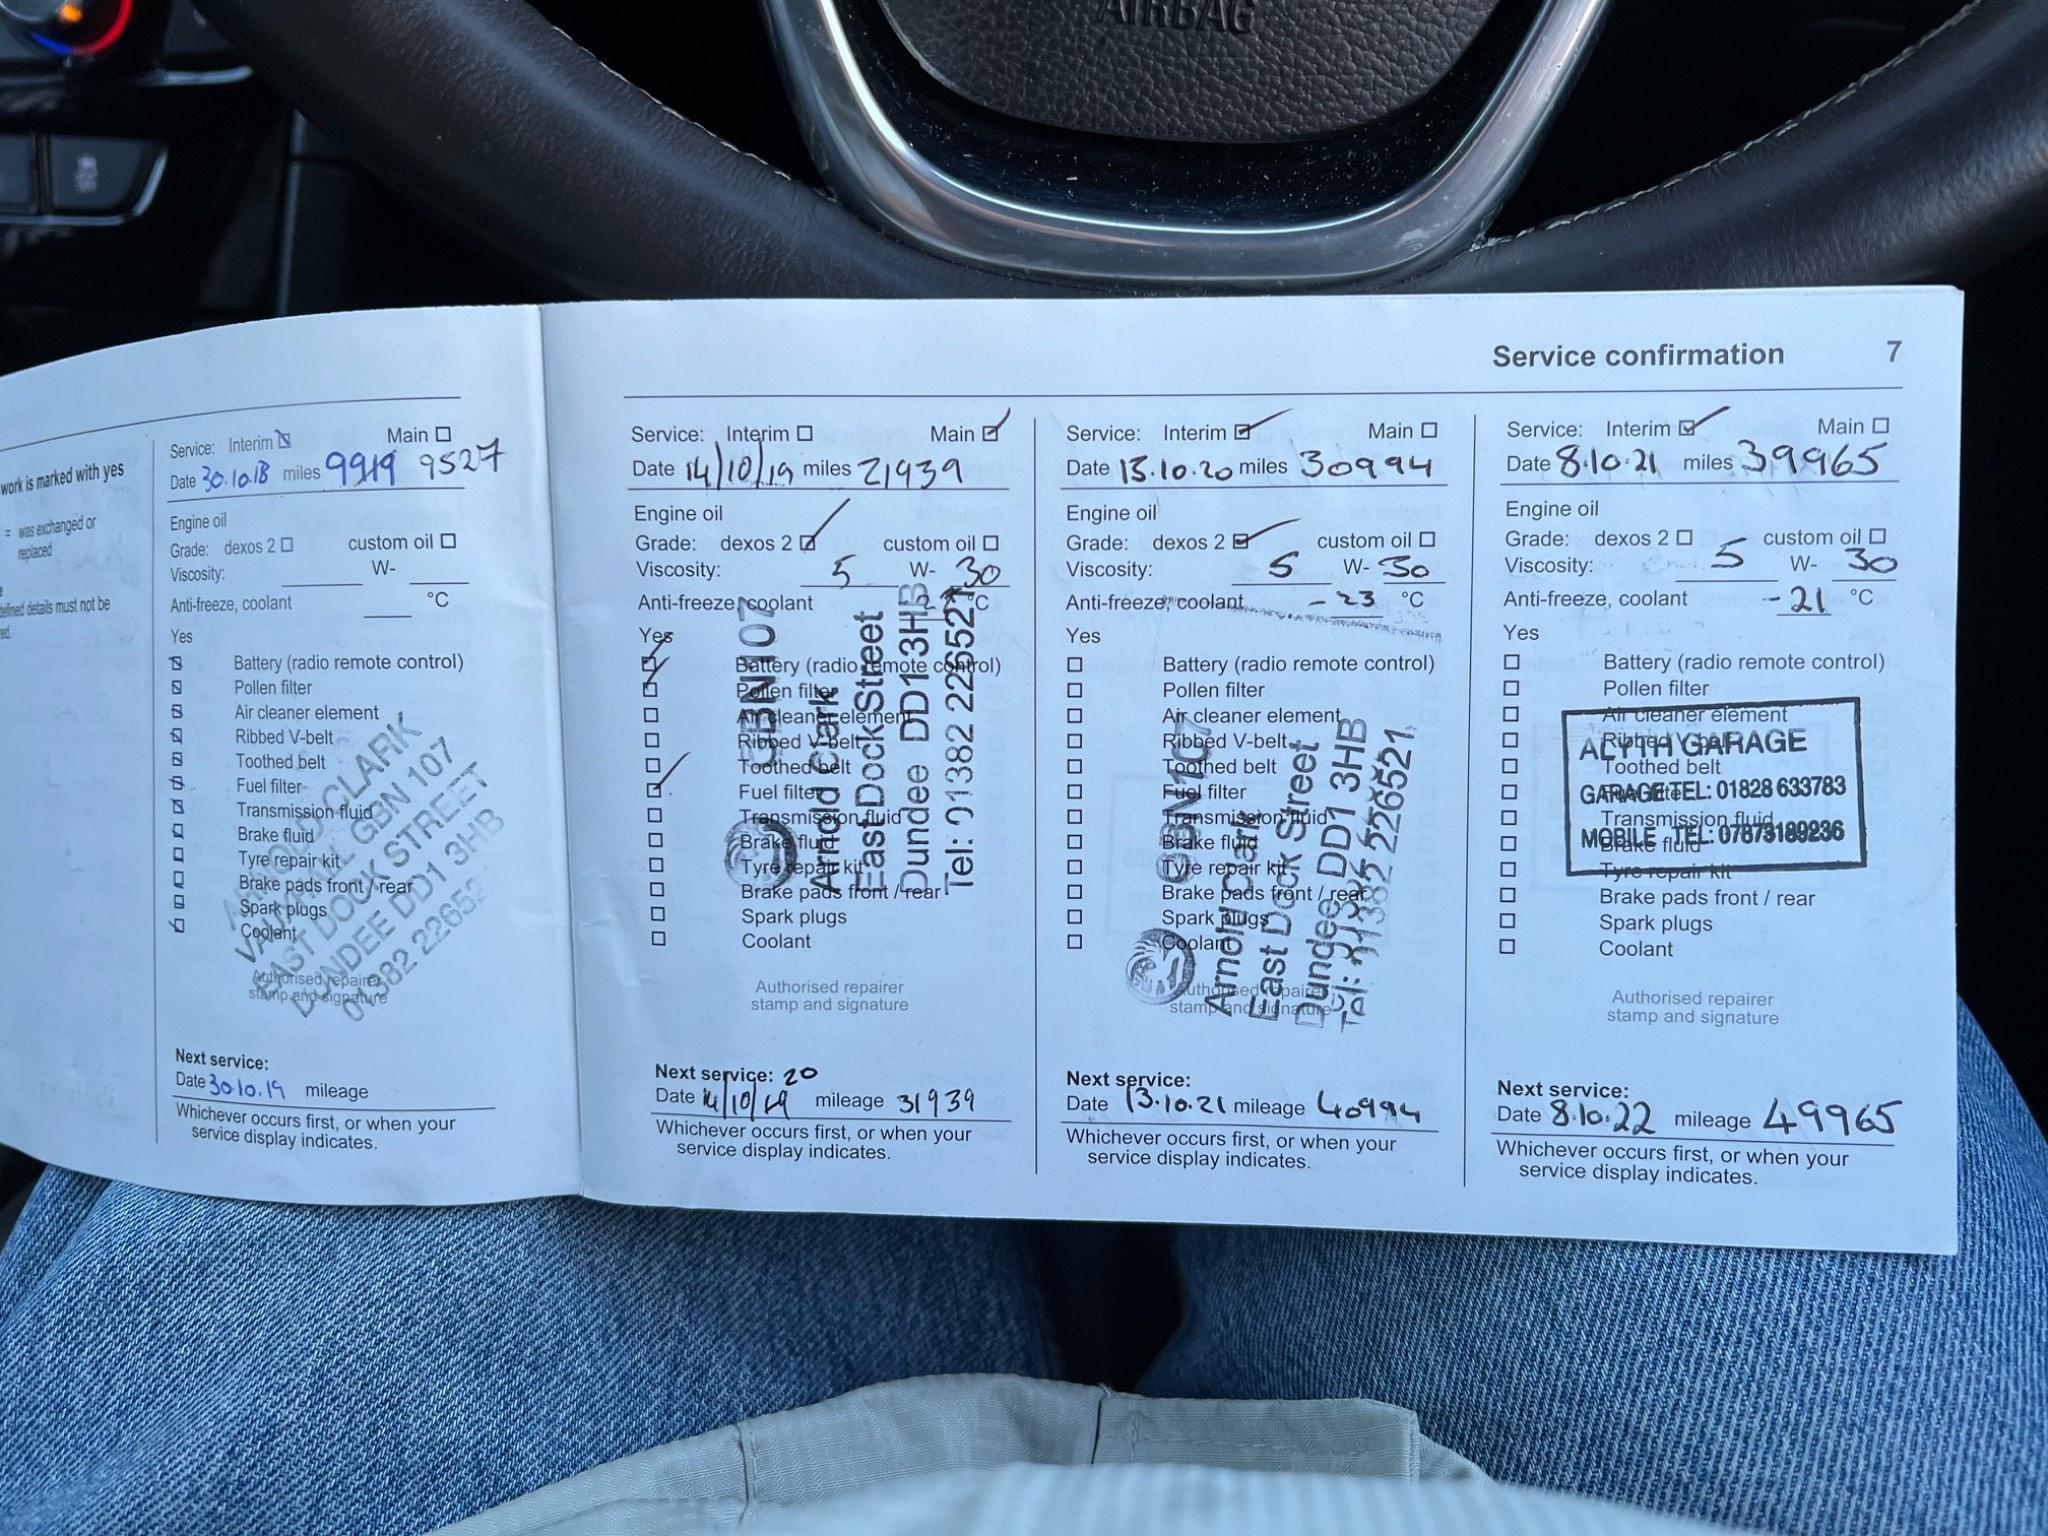 AIRBAG
Service confirmation 7
work is marked with yes
= was exchanged or
replaced
defined details must not be
Service: Interim Main
Date 30.10.18 miles 9919 9527
Engine oil
Grade: dexos 2 custom oil
Viscosity: W-
Anti-freeze, coolant °C
Yes
Battery (radio remote control)
Pollen filter
Air cleaner element
Ribbed V-belt
Toothed belt
Fuel filter
Transmission fluid
Brake fluid
Tyre repair kit
Brake pads front / rear
Spark plugs
Coolant
ARNOLD CLARK
VAUXHALL GBN 107
EAST DOCK STREET
DUNDEE DD1 3HB
01382 22652
Authorised repairer
stamp and signature
Next service:
Date 30.10.19 mileage
Whichever occurs first, or when your
service display indicates.
Service: Interim Main
Date 14/10/19 miles 21939
Engine oil
Grade: dexos 2 custom oil
Viscosity: 5 W- 30
Anti-freeze, coolant °C
Yes
Battery (radio remote control)
Pollen filter
Air cleaner element
Ribbed V-belt
Toothed belt
Fuel filter
Transmission fluid
Brake fluid
Tyre repair kit
Brake pads front / rear
Spark plugs
Coolant
GBN107
Arnold Clark
East Dock Street
Dundee DD1 3HB
Tel: 01382 226521
Authorised repairer
stamp and signature
Next service: 20
Date 14/10/19 mileage 31939
Whichever occurs first, or when your
service display indicates.
Service: Interim Main
Date 13.10.20 miles 30994
Engine oil
Grade: dexos 2 custom oil
Viscosity: 5 W- 30
Anti-freeze, coolant -23 °C
Yes
Battery (radio remote control)
Pollen filter
Air cleaner element
Ribbed V-belt
Toothed belt
Fuel filter
Transmission fluid
Brake fluid
Tyre repair kit
Brake pads front / rear
Spark plugs
Coolant
GBN107
Arnold Clark
East Dock Street
Dundee DD1 3HB
Tel: 01382 226521
Authorised repairer
stamp and signature
Next service:
Date 13.10.21 mileage 40994
Whichever occurs first, or when your
service display indicates.
Service: Interim Main
Date 8.10.21 miles 39965
Engine oil
Grade: dexos 2 custom oil
Viscosity: 5 W- 30
Anti-freeze, coolant -21 °C
Yes
Battery (radio remote control)
Pollen filter
Air cleaner element
Ribbed V-belt
Toothed belt
Fuel filter
Transmission fluid
Brake fluid
Tyre repair kit
Brake pads front / rear
Spark plugs
Coolant
ALYTH GARAGE
GARAGE TEL: 01828 633783
MOBILE TEL: 07873189236
Authorised repairer
stamp and signature
Next service:
Date 8.10.22 mileage 49965
Whichever occurs first, or when your
service display indicates.